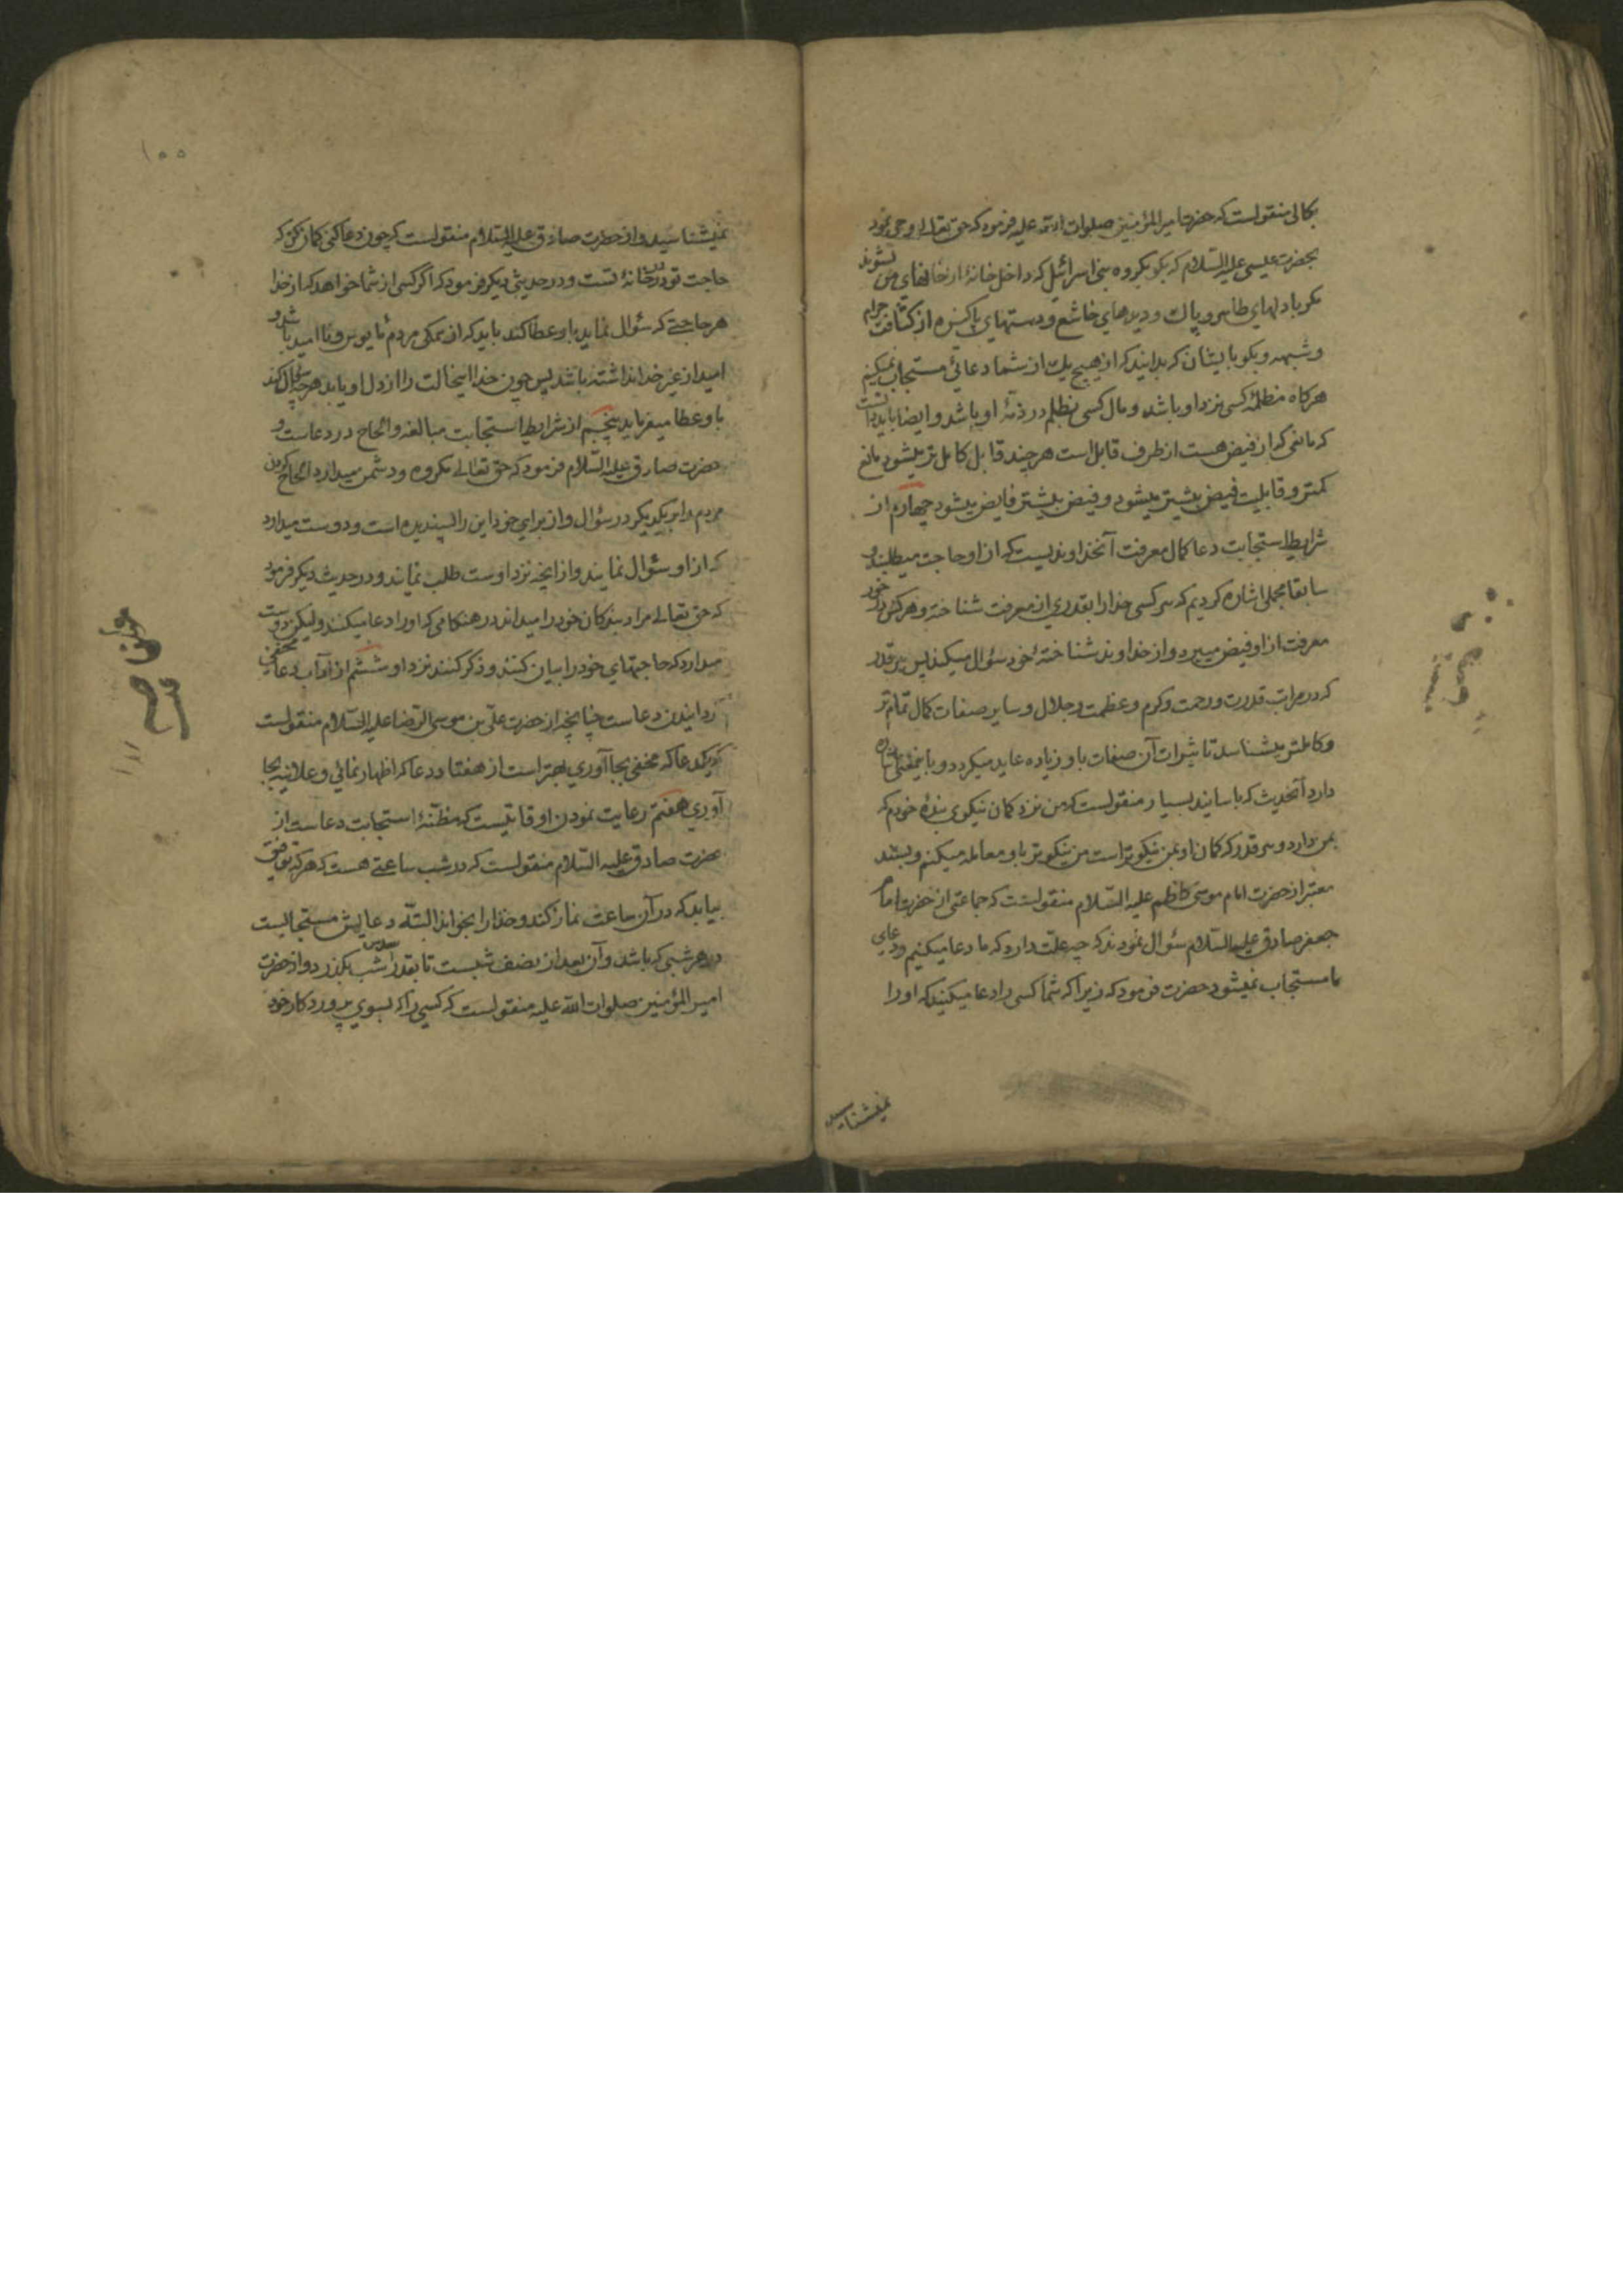 بکالی منقولست که حضرت امیر المؤمنین صلوات الله علیه فرمود که حق تعالی وحی نمود
بحضرت عیسی علیه السلام که بکو بکروه بنی اسرائیل که داخل خانهٔ از خانهای من نشوند
مکر با دلهای طاهر و پاک و دیدهای خاشع و دستهای پاکیزه از کثافت حرام
و شبهه و بکو بایشان که بدانید که از هیچ یک از شما دعائی مستجاب نمیکنم
هرکاه مظلمهٔ کسی نزد او باشد و مال کسی بظلم در ذمهٔ او باشد و ایضا باید دانست
که مانعی که از فیض هست از طرف قابل است هر چند قابل کامل تر میشود مانع
کمتر و قابلیت فیض بیشتر میشود و فیض بیشتر فایض میشود چهارم از
شرایط استجابت دعا کمال معرفت آنخداوندیست که از او حاجت میطلبد و
سابقا مجملی اشاره کردیم که هر کسی خدا را بقدری از معرفت شناخته و هرکس در خور
معرفت از او فیض میبرد و از خداوند شناختهٔ خود سؤال میکند پس هر قدر
که در مراتب قدرت و رحمت و کرم و عظمت و جلال و سایر صفات کمال تمام تر
و کاملتر میشناسد تاثیرات آن صفات باو زیاده عاید میکردد و باینمعنی اشاره
دارد آنحدیث که باسانید بسیار منقولست که من نزد کمان نیکوی بندهٔ خودم که
بمن دارد و هر قدر که کمان او بمن نیکوتر است من نیکوتر باو معامله میکنم و بسند
معتبر از حضرت امام موسی کاظم علیه السلام منقولست که جماعتی از حضرت امام
جعفر صادق علیه السلام سؤال نمودند که چه علت دارد که ما دعا میکنیم و دعای
ما مستجاب نمیشود حضرت فرمود که زیرا که شما کسی را دعا میکنید که او را
نمیشناسید
۱۵۵
نمیشناسید و از حضرت صادق علیه السلام منقولست که چون دعا کنی کمان کن که
حاجت تو در در خانهٔ تست و در حدیثی دیکر فرمود که اکر کسی از شما خواهد که از خدا
هر حاجتی که سؤال نماید باو عطا کند باید که از همکی مردم مایوس و نا امید باشد و
امید از غیر خدا نداشته باشد پس چون خدا اینحالت را از دل او یابد هر چه سؤال کند
باو عطا میفرماید پنجم از شرایط استجابت مبالغه و الحاح در دعاست و
حضرت صادق علیه السلام فرمود که حق تعالی مکروه و دشمن میدارد الحاح کردن
مردم را بر یکدیکر در سؤال و از برای خود این را پسندیده است و دوست میدارد
که از او سؤال نمایند و از آنچه نزد اوست طلب نمایند و در حدیث دیکر فرمود
که حق تعالی مراد بندکان خود را میداند در هنکامی که او را دعا میکنند ولیکن دوست
میدارد که حاجتهای خود را بیان کنند و ذکر کنند نزد او ششم از آداب دعا مخفی
کردانیدن دعاست چنانچه از حضرت علی بن موسی الرضا علیه السلام منقولست
که یکدعا که مخفی بجا آوری بهتر است از هفتاد دعا که اظهار نمائی و علانیه بجا
آوری هفتم رعایت نمودن اوقاتیست که مظنهٔ استجابت دعاست از
حضرت صادق علیه السلام منقولست که در شب ساعتی هست که هر که توفیق
بیابد که در آن ساعت نماز کند و خدا را بخواند البته دعایش مستجابست
در هر شبی که باشد و آن بعد از نصف شبست تا بقدر سدس شب بکذرد و از حضرت
امیر المؤمنین صلوات الله علیه منقولست که کسی را که بسوی پروردکار خود